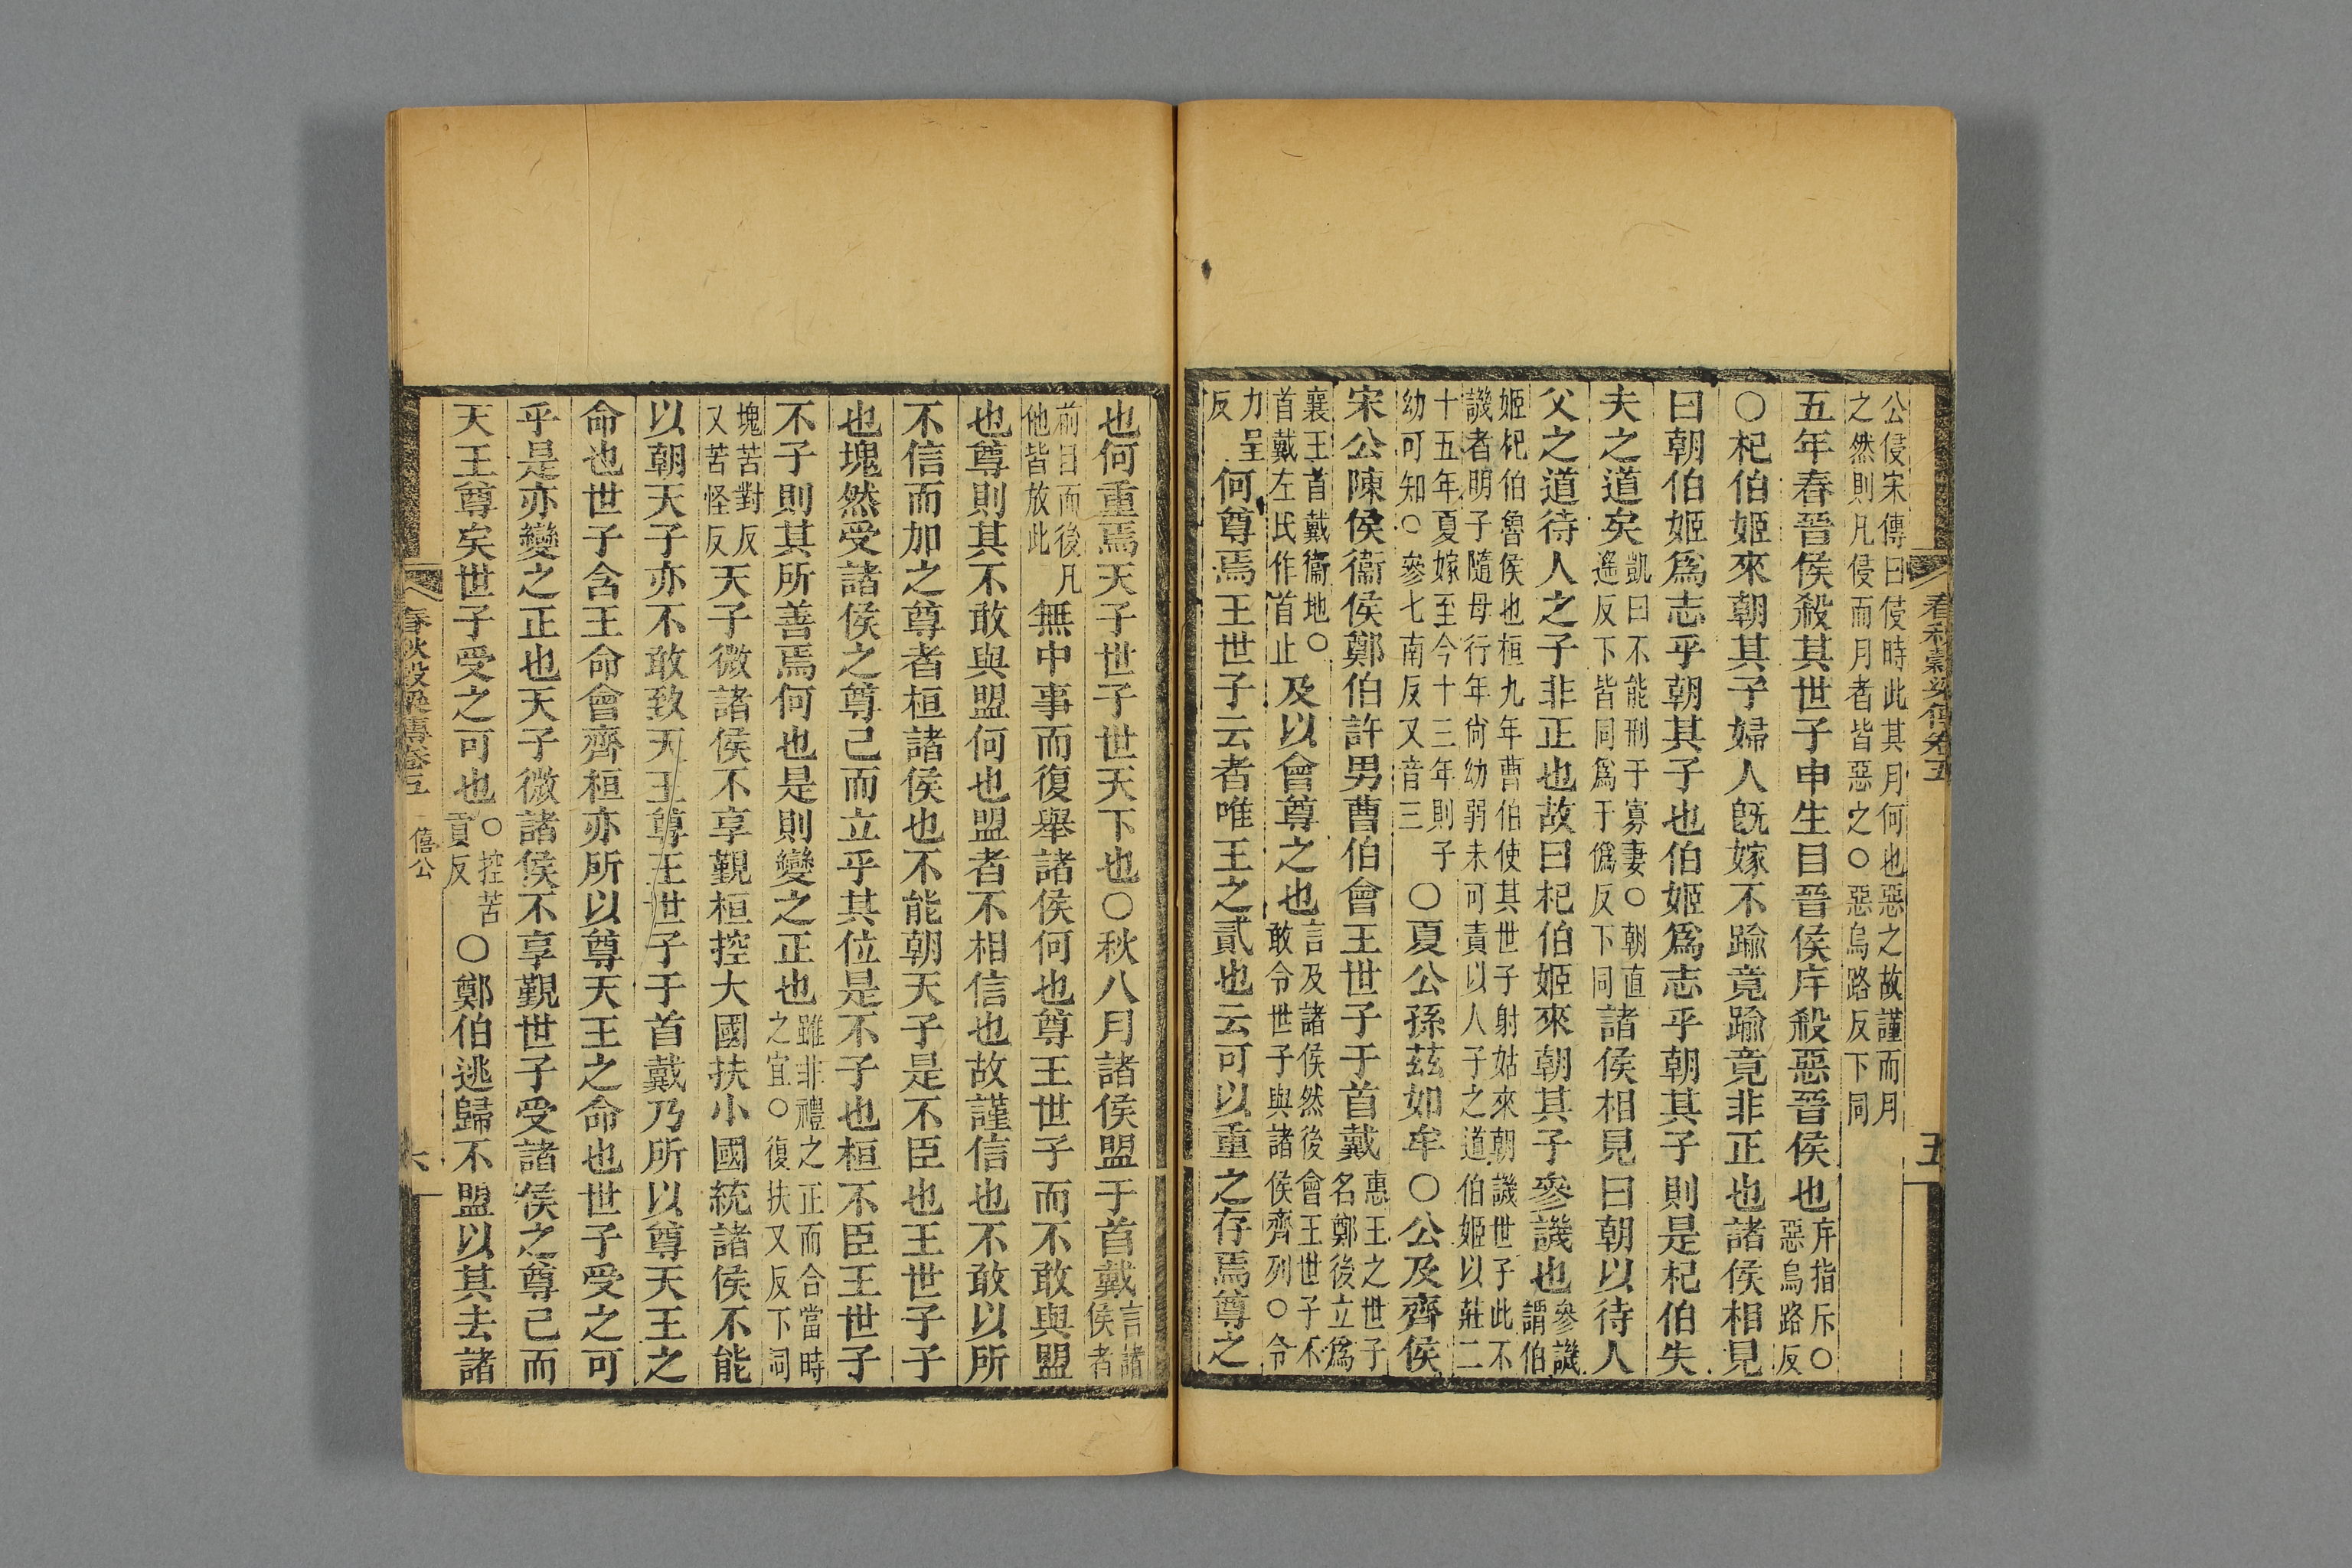 公侵宋傳曰侵時此其月何也惡之故謹而月
之然則凡侵而月者皆惡之○惡烏路反下同
五年春晉侯殺其世子申生目晉侯斥殺惡晉侯也斥指斥○
惡烏路反
○杞伯姬來朝其子婦人旣嫁不踰竟踰竟非正也諸侯相見
曰朝伯姬爲志乎朝其子也伯姬爲志乎朝其子則是杞伯失
夫之道矣凱曰不能刑于寡妻○朝直
遙反下皆同爲于僞反下同諸侯相見曰朝以待人
父之道待人之子非正也故曰杞伯姬來朝其子參譏也參譏
謂伯
姬杞伯魯侯也桓九年曹伯使其世子射姑來朝譏世子此不
譏者明子隨母行年尙幼弱未可責以人子之道伯姬以莊二
十五年夏嫁至今十三年則子
幼可知○參七南反又音三○夏公孫茲如牟○公及齊侯
宋公陳侯衞侯鄭伯許男曹伯會王世子于首戴惠王之世子
名鄭後立爲
襄王首戴衞地○
首戴左氏作首止及以會尊之也言及諸侯然後會王世子不
敢令世子與諸侯齊列○令
力呈
反何尊焉王世子云者唯王之貳也云可以重之存焉尊之
春秋穀梁傳卷五
五
也何重焉天子世子世天下也○秋八月諸侯盟于首戴言諸
侯者
前目而後凡
他皆放此無中事而復舉諸侯何也尊王世子而不敢與盟
也尊則其不敢與盟何也盟者不相信也故謹信也不敢以所
不信而加之尊者桓諸侯也不能朝天子是不臣也王世子子
也塊然受諸侯之尊己而立乎其位是不子也桓不臣王世子
不子則其所善焉何也是則變之正也雖非禮之正而合當時
之宜○復扶又反下同
塊苦對反
又苦怪反天子微諸侯不享覲桓控大國扶小國統諸侯不能
以朝天子亦不敢致天王尊王世子于首戴乃所以尊天王之
命也世子含王命會齊桓亦所以尊天王之命也世子受之可
乎是亦變之正也天子微諸侯不享覲世子受諸侯之尊己而
天王尊矣世子受之可也○控苦
貢反○鄭伯逃歸不盟以其去諸
春秋穀梁傳卷五 僖公
六